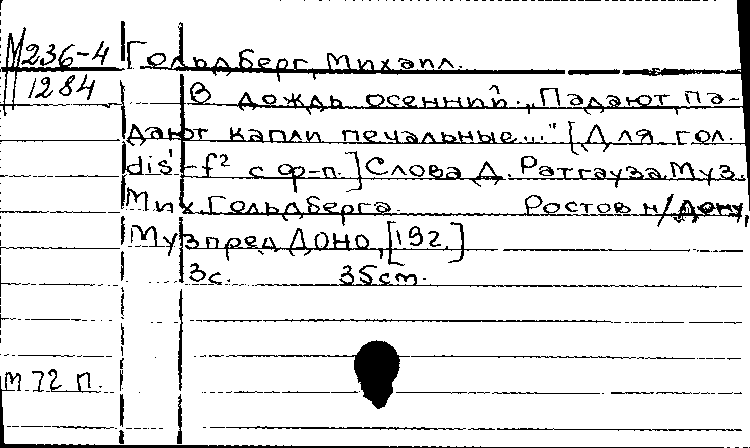 М236-4 Гольдберг, Михаил.
1284 В дождь осенний. „Падают, па-
дают капли печальные..." [Для гол.
dis¹-f² с ф-п.] Слова Д. Ратгауза. Муз.
Мих. Гольдберга. Ростов н/Дону,
Музпред ДОНО, [192.]
3с. 35cm.
m 72 п.